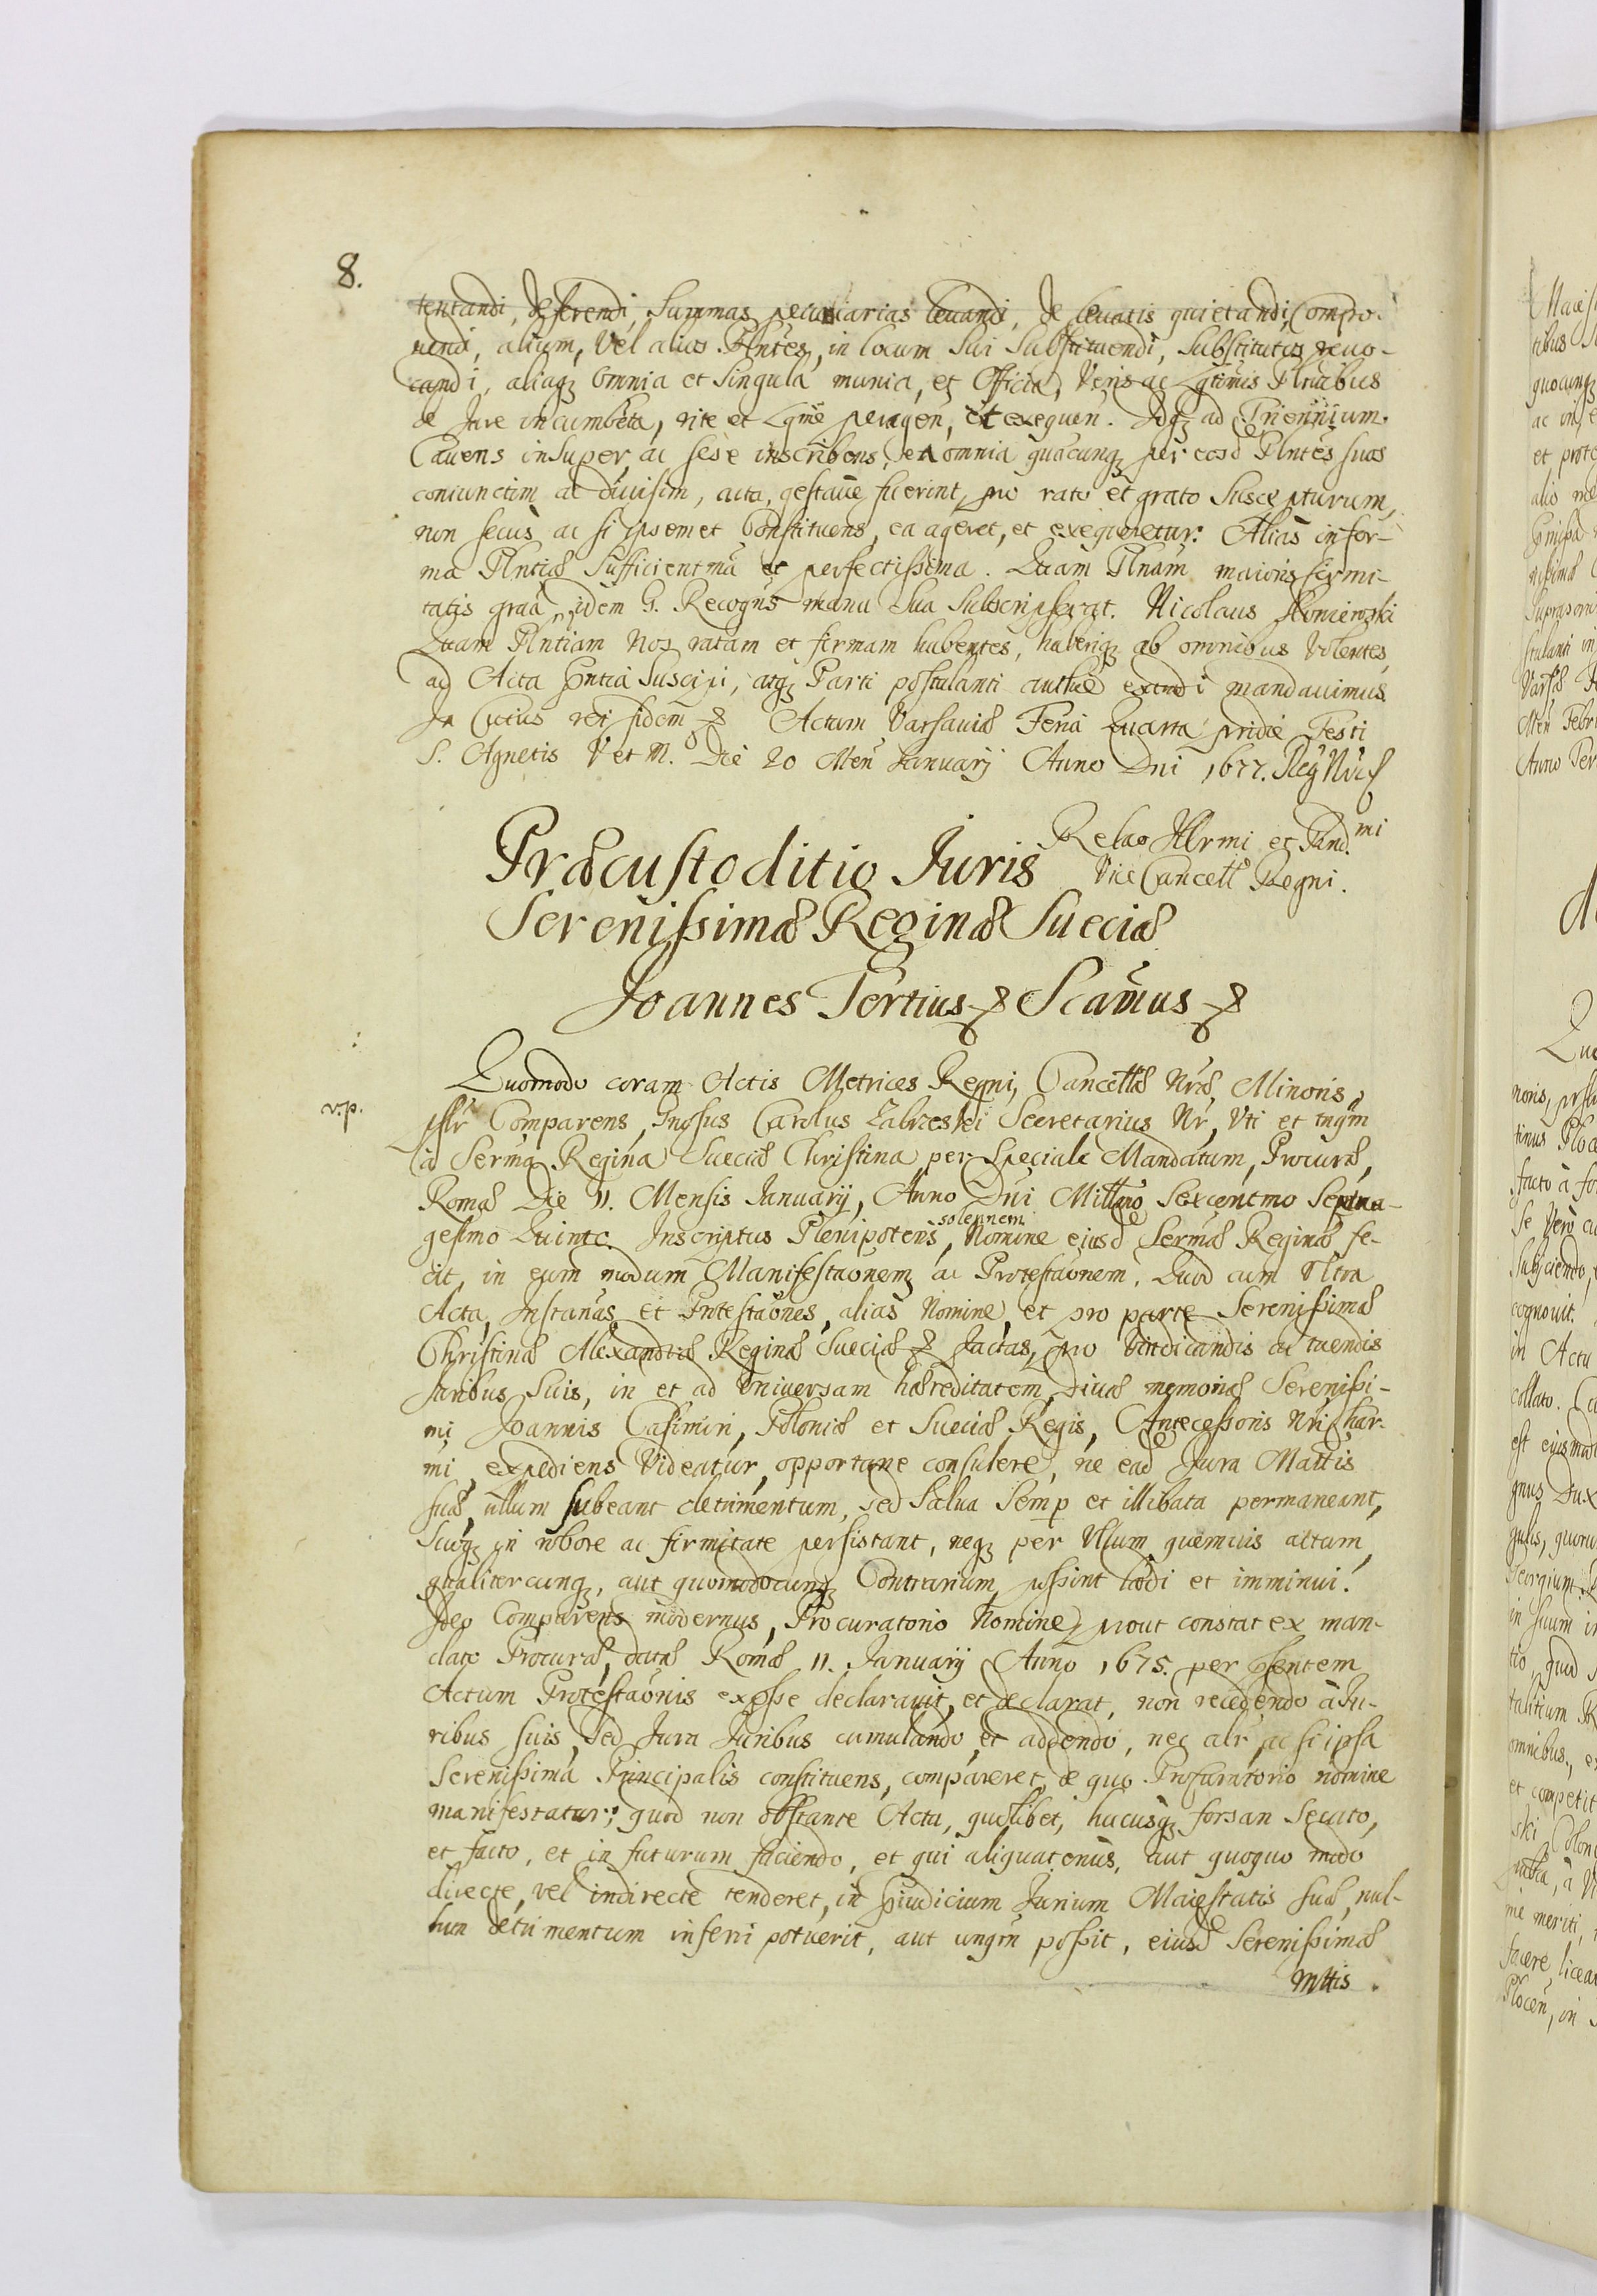 8.
tentandi, deferendi, Summas pecuniarias levandi, de levatis quietandi, Compro-
nendi, alium, Vel alios Plntes, in locum Sui Substituendi, Substitutos revo-
candi, aliaq omnia et Singula munia, et Officia, Veris ac Lgtimis Plntibus
de Jure incumbëta, rite et Lgmë peragen, et exequen. Idq ad Triennium.
Cavens insuper, ac sese inscribens, ea omnia quæcunq per eosd Plntes suos
coniunctim ac divisim, acta, gestave fuerint, pro rato et grato Suscepturum,
non secus ac si ipsemet Constituens, ea ageret, et exequeretur. Alias in for-
ma Plntiæ Sufficientmã et perfectissima. Quam Plnãm maioris firmi-
tatis graã, idem G. Recogns manu Sua Subscripserat. Nicolaus
Quam Plntiam Nos ratam et firmam habentes, haberiq ab omnibus Volentes,
ad Acta Pntia Suscipi, atq Parti postulanti authce extradi mandavimus
In Cuius rei fidem &. Actum Varsaviæ Feria Quarta pridie Festi
S. Agnetis V et M. Die 20 Men Januarij Anno Dni 1677. Reg Nri
Relao Illrmi et Rnd.mi
Vice Cancell Regni.
Præcustoditio Juris
Serenissimæ Reginæ Sueciæ
Joannes Tertius & Scamus &
Quomodo coram Actis Metrices Regni, Cancellæ Nræ, Minoris,
v.p.
pslr Comparens, Gnosus Carolus Secretarius Nr, Vti et tnqm
à Serma Regina Sueciæ Christina per Speciale Mandatum, Procuræ,
Romæ Die 11. Mensis Januarij, Anno Dni Millmo Sexcentmo Septua-
gesimo Quinto Inscriptus Plenipotens, Nomine eiusd Sermæ Reginæ solennem fe-
cit, in eum modum Manifestaonem ac Protestaonem. Quod cum Vltra
Acta, Instanas, et Protestaones, alias Nomine, et pro parte Serenissimæ
Christinæ Alexandræ Reginæ Sueciæ & factas, pro Vindicandis ac tuendis
Juribus Suis, in et ad Vniversam hæreditatem Divæ memoriæ Serenissi-
mi Joannis Casimiri, Poloniæ et Sueciæ Regis, Antecessoris Nri Char-
mi, expediens Videatur, opportune consulere, ne ead Jura Mattis
suæ, ullum subeant detrimentum, sed Salva Semp et illibata permaneant,
Suoq in robore ac firmitate persistant, neq per Vllum quemvis actum,
qualitercunq, aut quomodocunq Contrarium, possint lædi et imminui.
Ideo Comparens modernus, Procuratorio Nomine, prout constat ex man-
dato Procuræ, datæ Romæ 11. Januarij Anno 1675. per Psentem
Actum Protestaonis expsse declaravit, et declarat, non recedendo à Ju-
ribus suis, sed Jura Juribus cumulando, et addendo, nec alr, ac si ipsa
Serenissima Principalis constituens, compareret, de quo Procuratorio nomine
manifestatur; quod non obstante Actu, quolibet, hucusq forsan Secuto,
et facto, et in futurum faciendo, et qui aliquatenus, aut quoquo modo
directe, vel indirecte tenderet, in Piudicium Jurium Maiestatis Suæ, nul-
lum detrimentum inferri potuerit, aut unqm possit, eiusd Serenissimæ
Mttis.